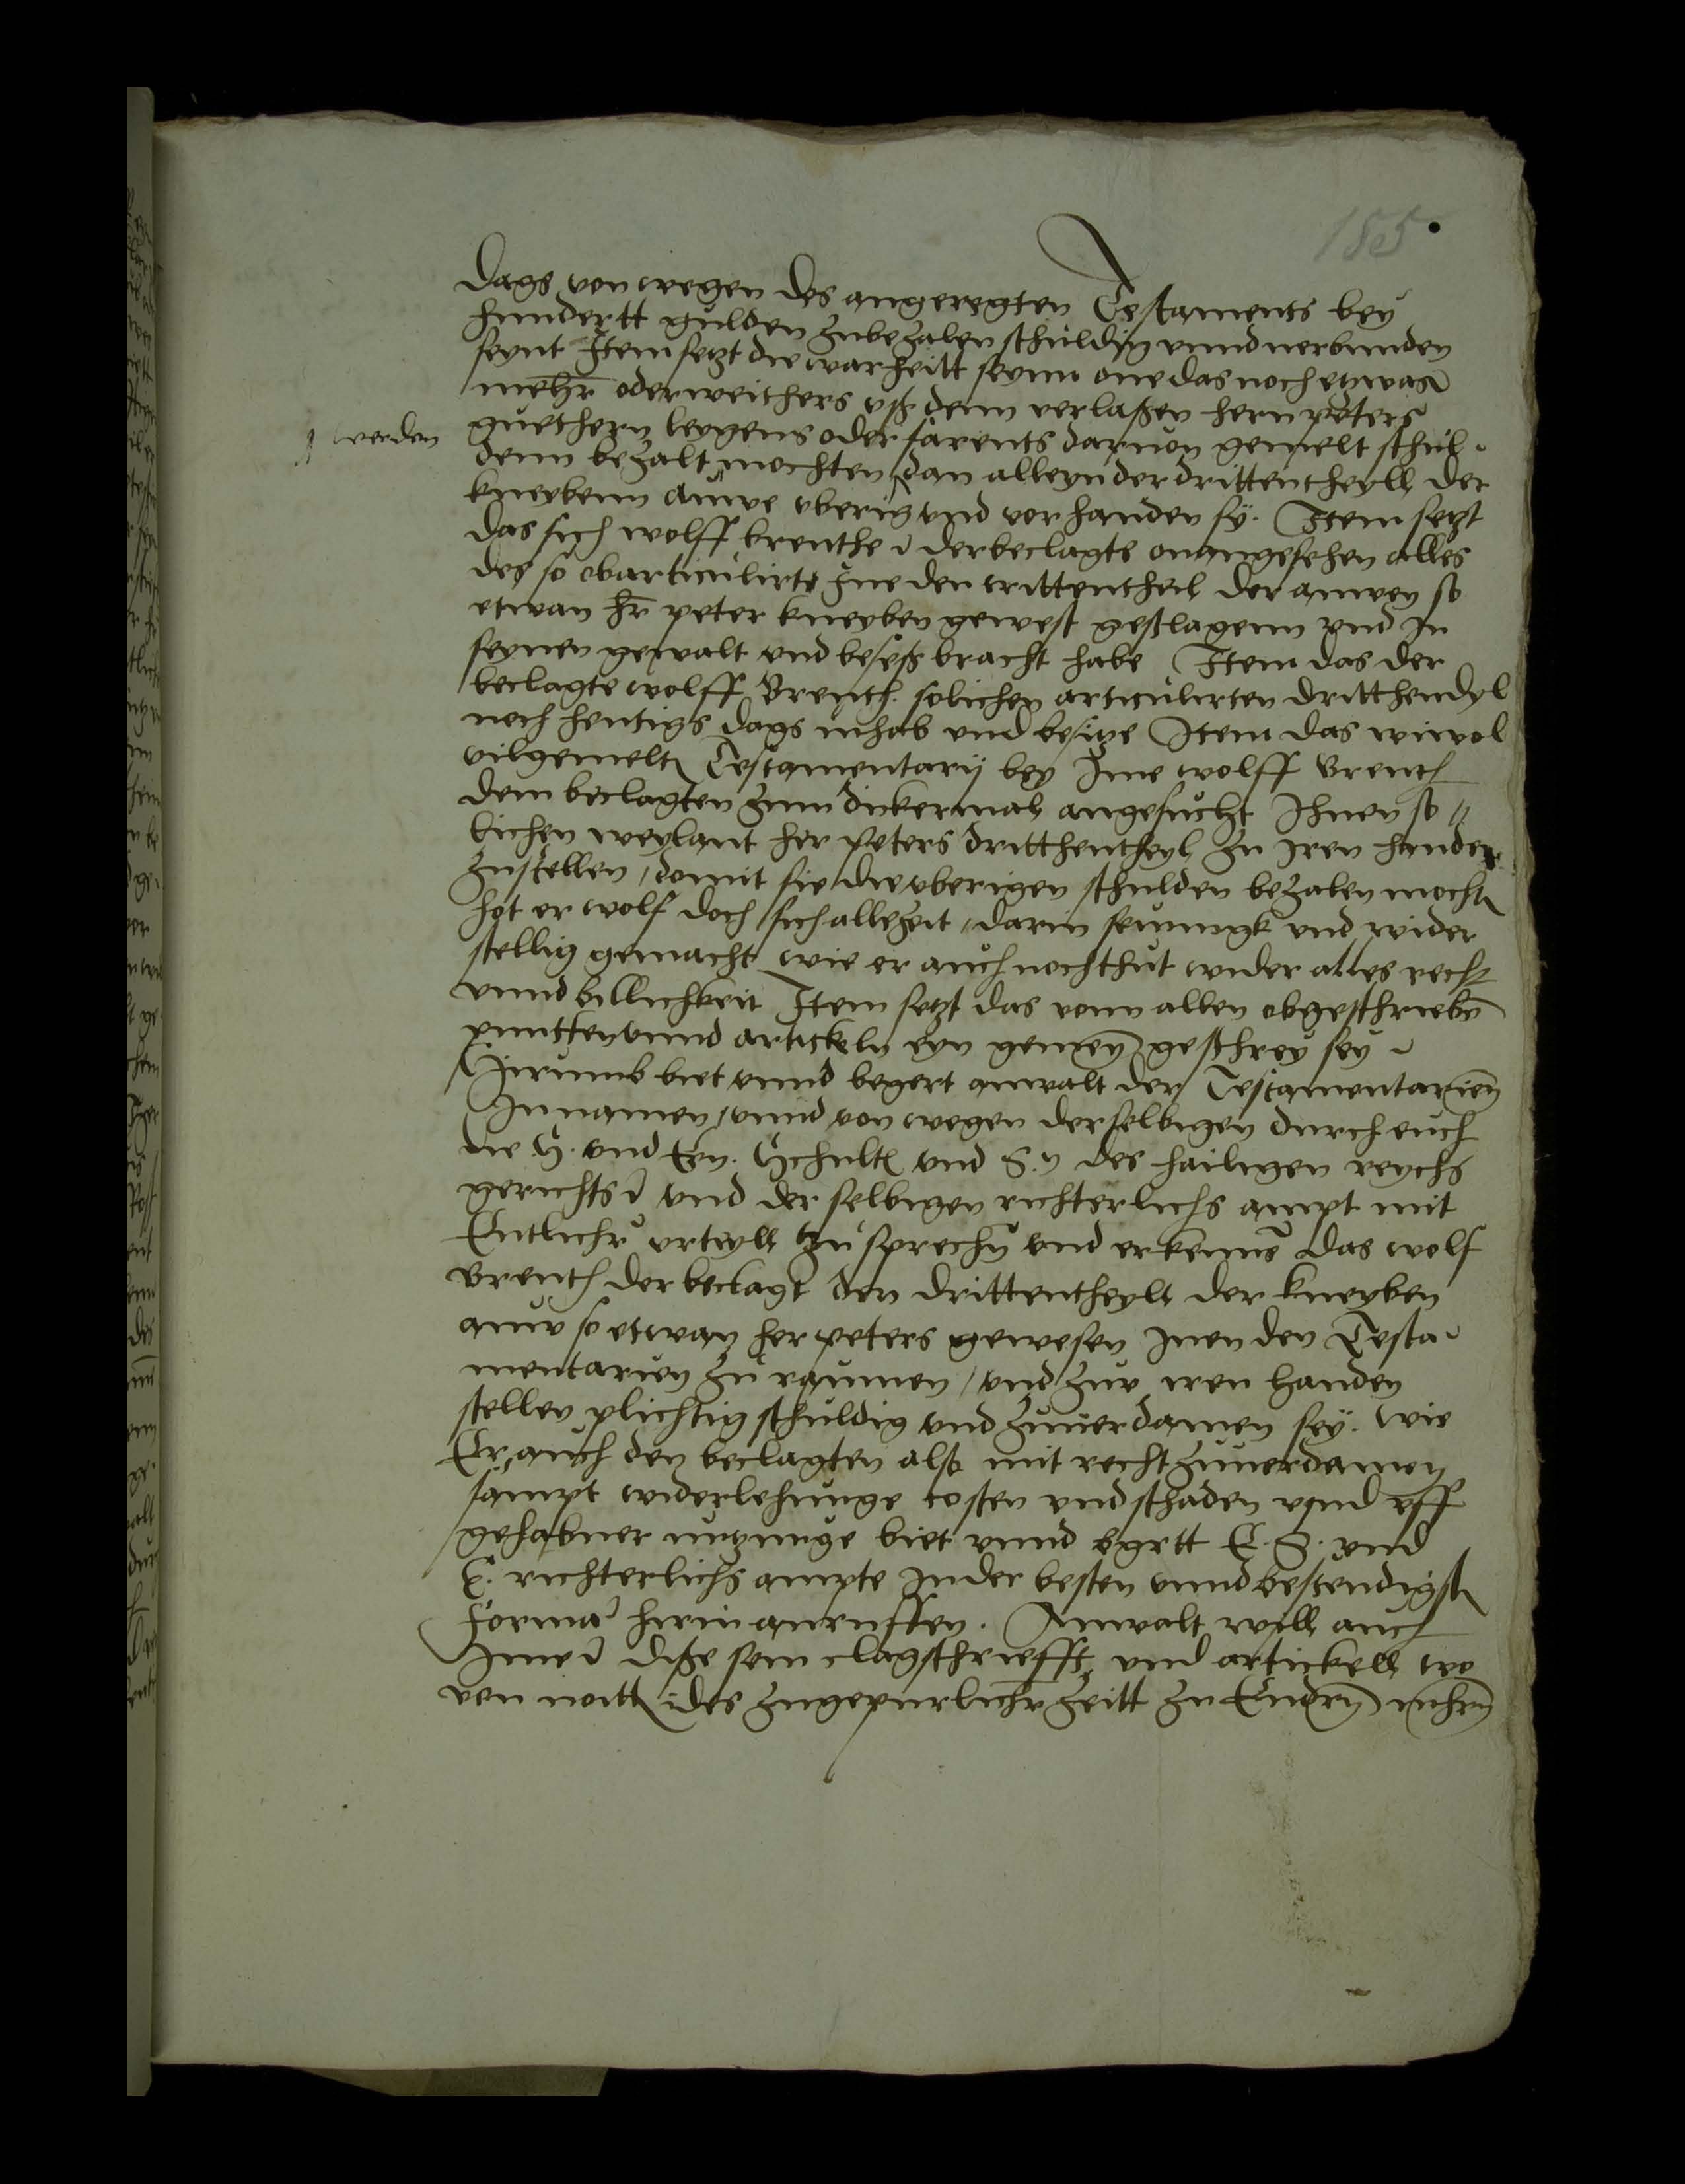 185
dags von wegen des angeregten Testaments bey
hundertt gulden zubezalen schuldig vnnd verbunden
seynt Item setzt die warheitt seynn one das noch etzwas
mehr oder weithers vß denn verlaßen hern peters
guethern leygens oder farents daruon gemelt schul-
werden
denn bezalt mochten dan alleyn der drittentheyll der
kneybenn auwe vberig vnd vorhanden sÿ. Item setzt
das sich wolff brenthe der beclagte onangesehen alles
des so obarticulirt Jne den trittentheil der anwen so
etwan hr peter kneyben gewest geslagenn vnd In
seynen gewalt vnd beseß bracht habe Item das der
beclagte wolff Brenth. solichen articulirten dritthendyl
noch heutigs dags inhab vnd besitze Item das wiewol
vilgemelt Testamentarij bey Jme wolff Brenth
dem beclagten zum dickermal angesucht Ihnen so
lichen weylant her peters dritthentheyl zu Iren handen
zustellen / domit sie die vberigen schulden bezalen mocht
hot er wolf doch sich allezeit / darin seumygk vnd wider
stellig gemacht wie er auch noch thut wider alles recht
vnnd billichkeit Item setzt das vonn allen obgeschrieben
puncten vnnd artickeln eyn gemeyn geschrey sey
Hirumb biet vnnd begert anwalt der Testamentarien
In namen / vnnd von wegen derselbigen durch euch
die H. vnd Ern. Schulth vnd S. des hailigen reychs
gerichts vnd der selbigen richterlichs ampt mit
Entlichr vrteyll zu sprechn vnd erkenne das wolf
Brenth der beclagt den drittentheyll der kneyben
auw so etwan her peters gewesen Inen den Testa
mentarien zu raumen / vnd zuu iren handen
stellen plichtig schuldig vnd zuuerdamen sey. wie
Er auch den beclagten also mit recht zuuerdamen
sampt widerlehunge costen vnd schaden vnd vff
gehabner nutzunge biet vnnd bgrtt E. S. vnd
E. richterlichs ampte In der besten vnnd bestendigst
forma hirin anruffen. Anwalt will auch
Ime diße sein clagschriefft vnd artickell wo
von nott ides zugepurlichr zeitt zu Endrn